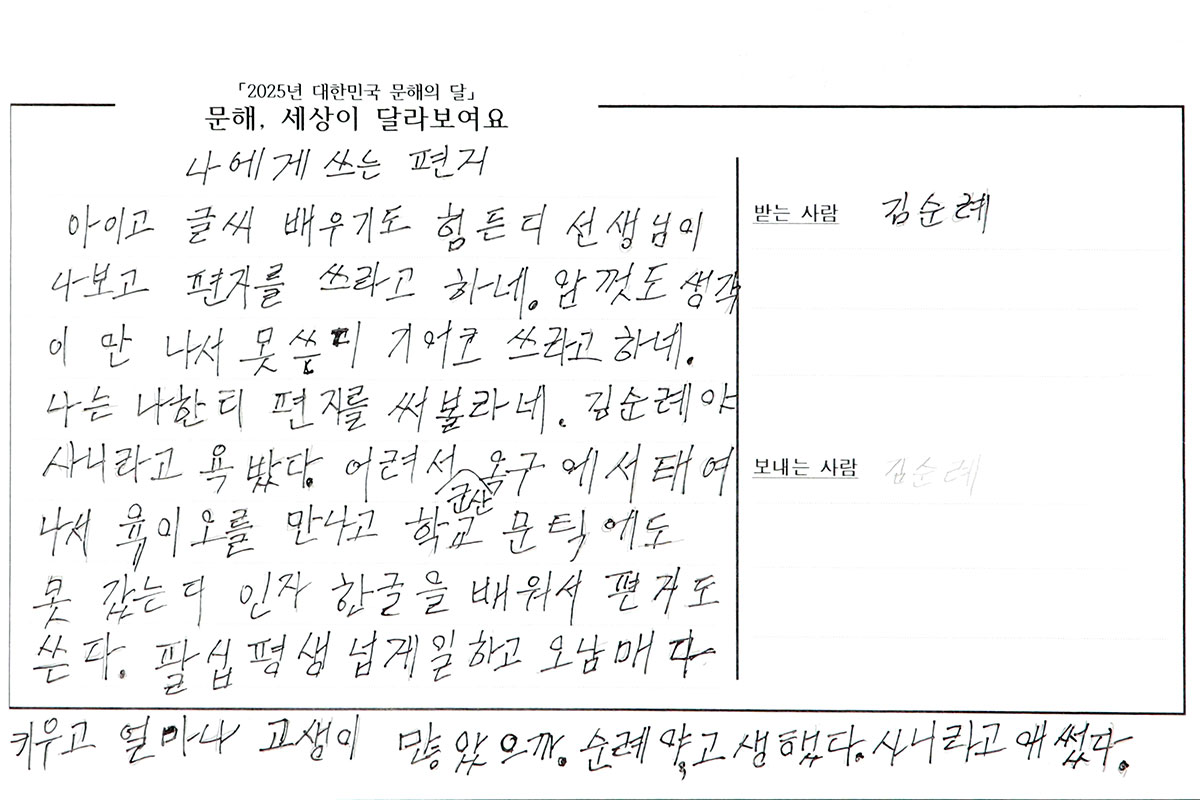 「2025년 대한민국 문해의 달」
문해, 세상이 달라보여요
나에게 쓰는 편지
아이고 글씨 배우기도 힘든디 선생님이
나보고 편자를 쓰라고 하네. 암껏도 생각
이 안 나서 못 쓴디 기어코 쓰라고 하네.
나는 나한티 편지를 써볼라네. 김순례야
사니라고 욕 밨다. 어려서 군산 옴구에서 태여
나서 육이오를 만나고 학교 문턱에도
못 갔는디 인자 한글을 배워서 편지도
쓴다. 팔십평생 넘게일하고 오남매 다
키우고 얼마나 고생이 많았으까. 순례야, 고생했다. 사니라고 애썼다.
받는 사람 김순례
보내는 사람 김순례